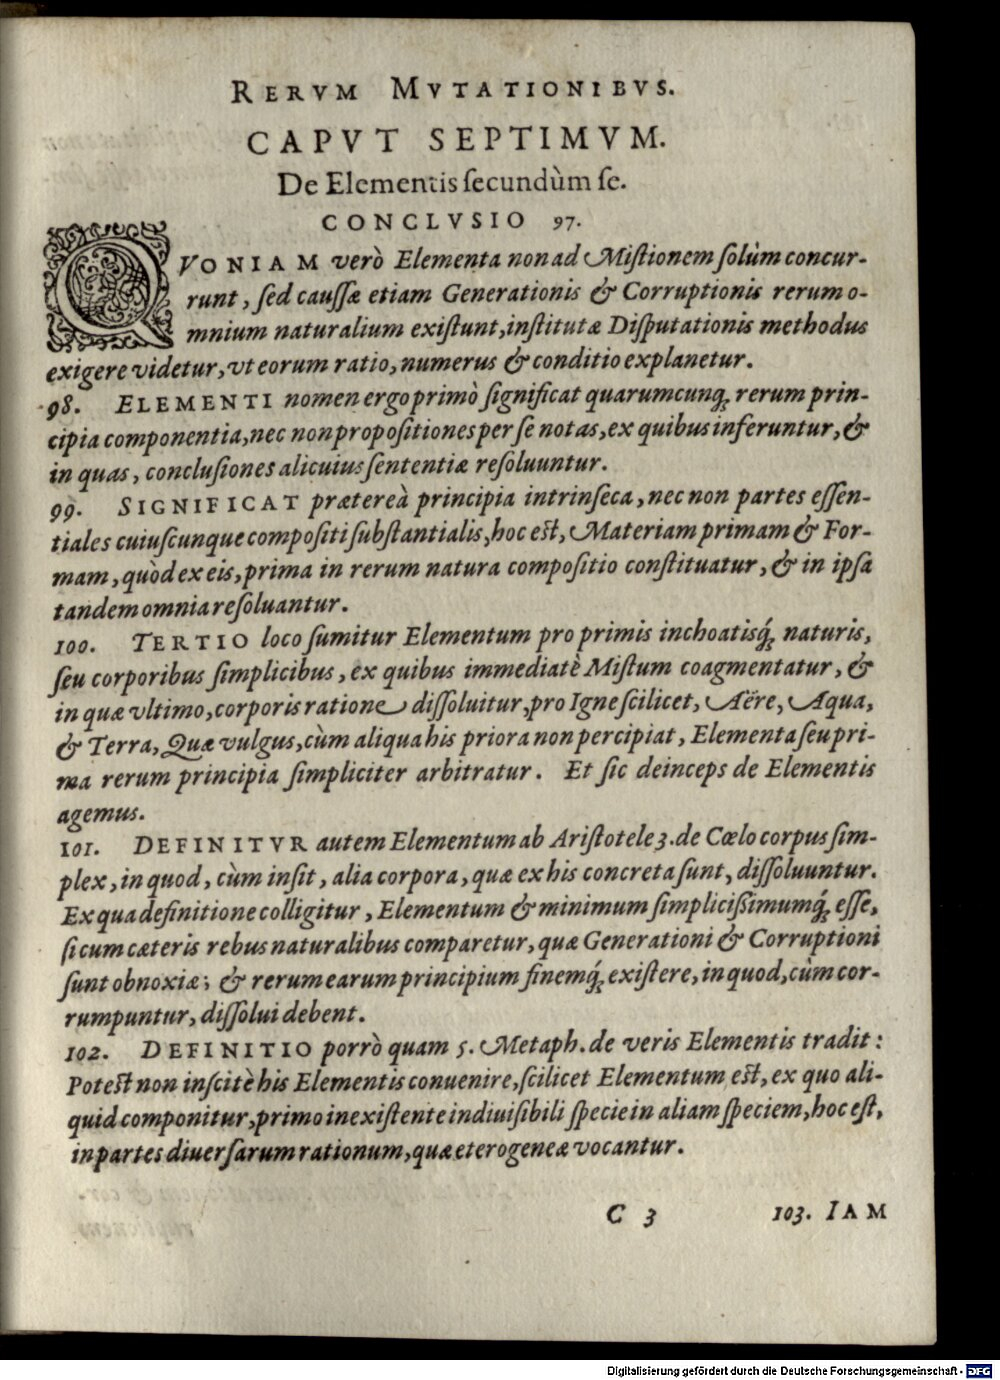 RERVM MVTATIONIBVS.
CAPVT SEPTIMVM.
De Elementis ſecundùm ſe.
CONCLVSIO 97.
QVONIAM verò Elementa non ad Miſtionem ſolùm concur-
runt, ſed cauſſæ etiam Generationis & Corruptionis rerum o-
mnium naturalium exiſtunt, inſtitutæ Diſputationis methodus
exigere videtur, vt eorum ratio, numerus & conditio explanetur.
98. ELEMENTI nomen ergo primò ſignificat quarumcunq́; rerum prin-
cipia componentia, nec non propoſitiones per ſe notas, ex quibus inferuntur, &
in quas, concluſiones alicuius ſententiæ reſoluuntur.
99. SIGNIFICAT prætereà principia intrinſeca, nec non partes eſſen-
tiales cuiuſcunque compoſiti ſubſtantialis, hoc eſt, Materiam primam & For-
mam, quòd ex eis, prima in rerum natura compoſitio conſtituatur, & in ipſa
tandem omnia reſoluantur.
100. TERTIO loco ſumitur Elementum pro primis inchoatisq́; naturis,
ſeu corporibus ſimplicibus, ex quibus immediatè Miſtum coagmentatur, &
in quæ vltimo, corporis ratione diſſoluitur, pro Igne ſcilicet, Aëre, Aqua,
& Terra, Quæ vulgus, cùm aliqua his priora non percipiat, Elementa ſeu pri-
ma rerum principia ſimpliciter arbitratur. Et ſic deinceps de Elementis
agemus.
101. DEFINITVR autem Elementum ab Ariſtotele 3. de Cœlo corpus ſim-
plex, in quod, cùm inſit, alia corpora, quæ ex his concreta ſunt, diſſoluuntur.
Ex qua definitione colligitur, Elementum & minimum ſimpliciſſimumq́; eſſe,
ſi cum cæteris rebus naturalibus comparetur, quæ Generationi & Corruptioni
ſunt obnoxiæ; & rerum earum principium finemq́; exiſtere, in quod, cùm cor-
rumpuntur, diſſolui debent.
102. DEFINITIO porrò quam 5. Metaph. de veris Elementis tradit:
Poteſt non inſcitè his Elementis conuenire, ſcilicet Elementum eſt, ex quo ali-
quid componitur, primo inexiſtente indiuiſibili ſpecie in aliam ſpeciem, hoc eſt,
in partes diuerſarum rationum, quæ eterogeneæ vocantur.
C 3 103. IAM
Digitalisierung gefördert durch die Deutsche Forschungsgemeinschaft - DFG